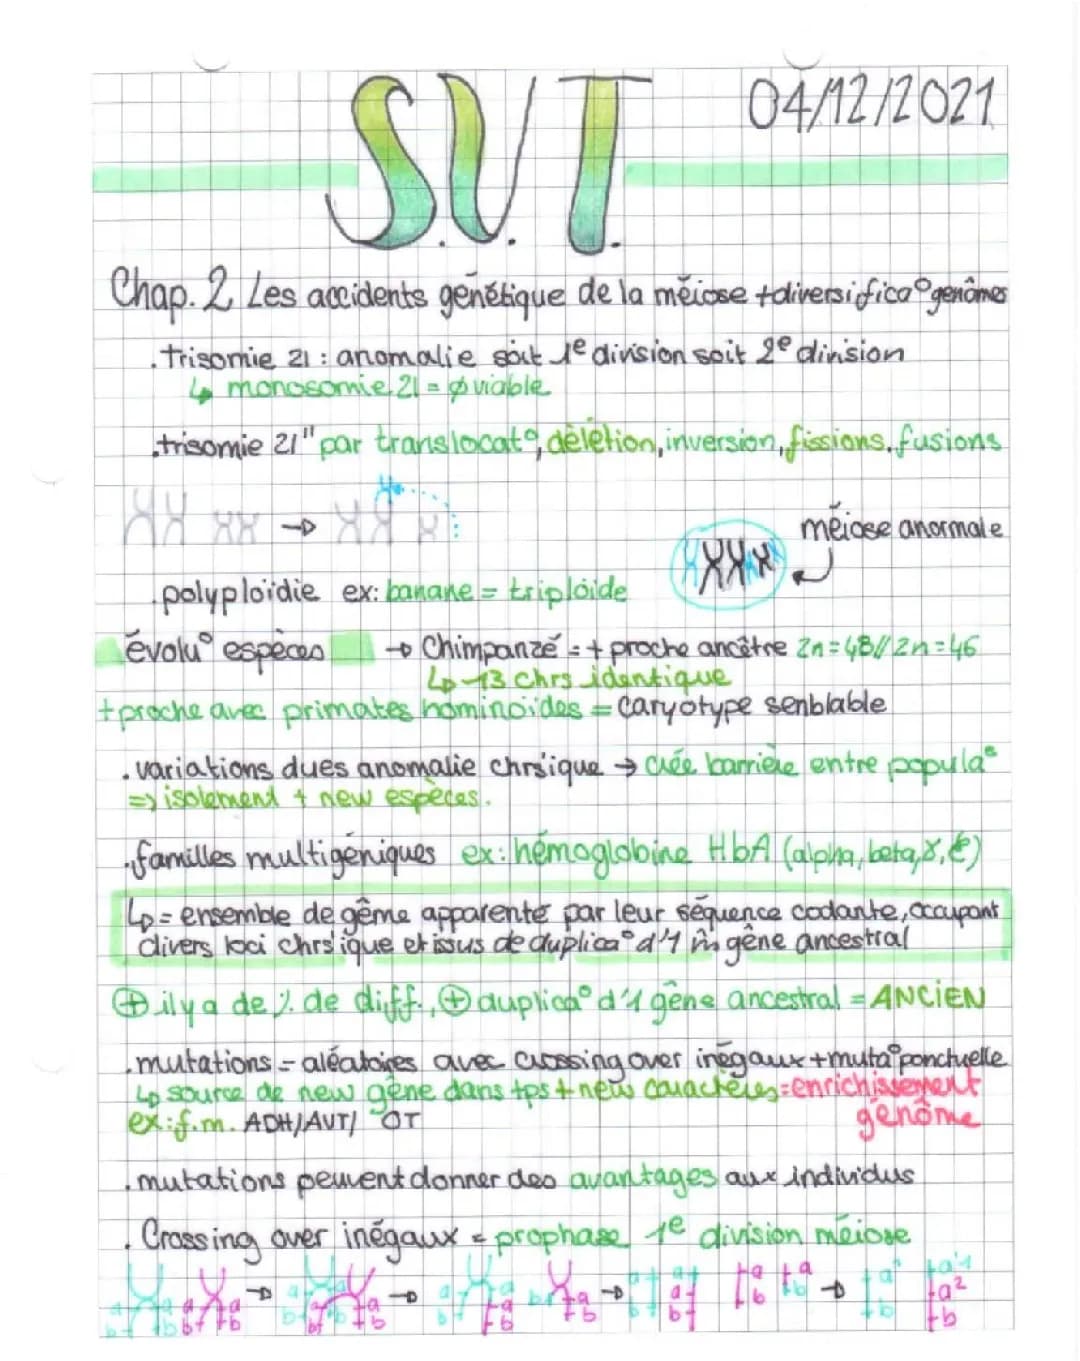 S.V.T.
04/12/2021
Chap. 2 Les accidents génétique de la méiose + diversifica° genômes
. trisomie 21 : anomalie soit 1e division soit 2e division
↳ monosomie 21 = ∅ viable
. trisomie 21" par translocat°, délétion, inversion, fissions, fusions
méiose anormale
. polyploïdie ex: banane = triploïde
évolu° espèces → Chimpanzé = + proche ancêtre 2n=48//2n=46
↳ 13 chrs identique
+ proche avec primates hominoïdes = caryotype senblable
. variations dues anomalie chrsique → crée barrière entre popula°
=> isolement + new espèces.
. familles multigéniques ex: hémoglobine HbA (alpha, beta, γ, ε)
↳ = ensemble de gême apparenté par leur séquence codante, occupant
divers loci chrsique et issus de duplica° d'1 m̂ gêne ancestral
⊕ il y a de % de diff., ⊕ duplica° d'1 gêne ancestral = ANCIEN
. mutations = aléatoires avec crossing over inégaux + muta° ponctuelle
↳ source de new gêne dans tps + new caractères = enrichissement
génôme
ex: f.m. ADH/AVT/ OT
. mutations peuvent donner des avantages aux individus
. Crossing over inégaux = prophase 1e division méiose